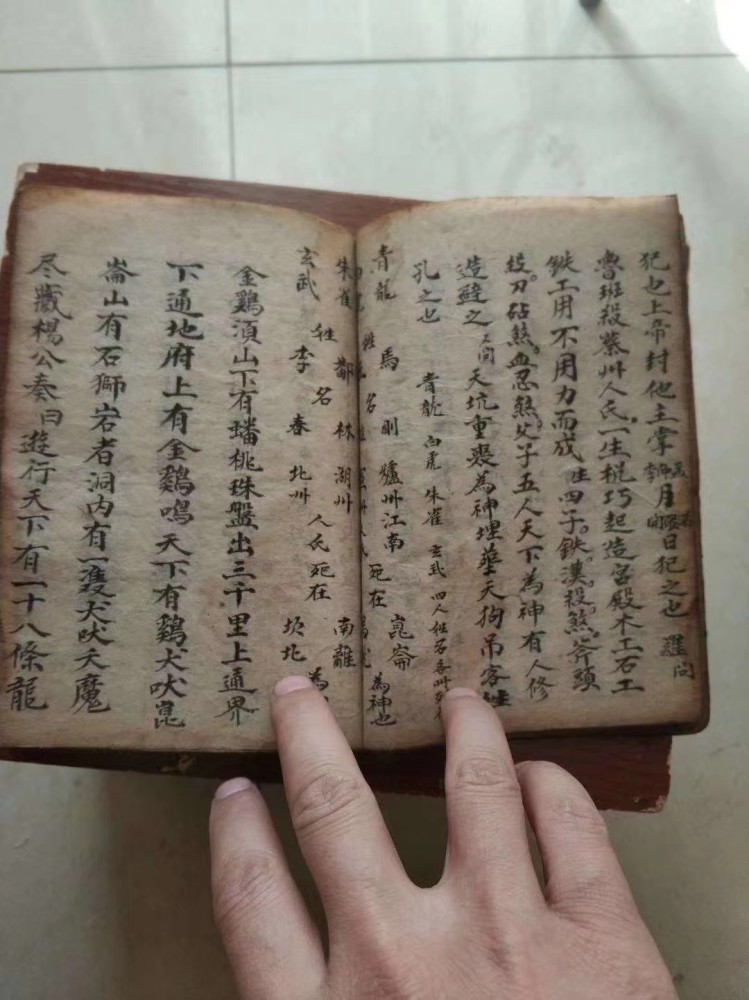 犯也上帝封他主掌月日犯之也 羅问
魯班殺蔡州人氏一生梲巧起造宮殿木工石工
鉄工用不用力而成 生四子。鉄漢。殺煞。斧頭
殺刀砧煞。血忍煞。父子五人天下為神有人修
造避之 人问 天坑重喪為神埋葬天狗吊客
孔之也 青龍 白虎 朱雀 玄武 四人姓名各州
青龍 姓馬名剛 爐州江南 死在崑崙為神也
朱雀 姓鄒名林 湖州人氏死在南離
玄武 姓李名春 北州人氏死在坎北為
金鷄湏山下有璠桃珠盤出三千里上通界
下通地府上有金鷄鳴天下有鷄犬吠崑
崙山有石獅岩者洞内有一隻犬吠天魔
尽藏楊公奏曰遊行天下有一十八條龍